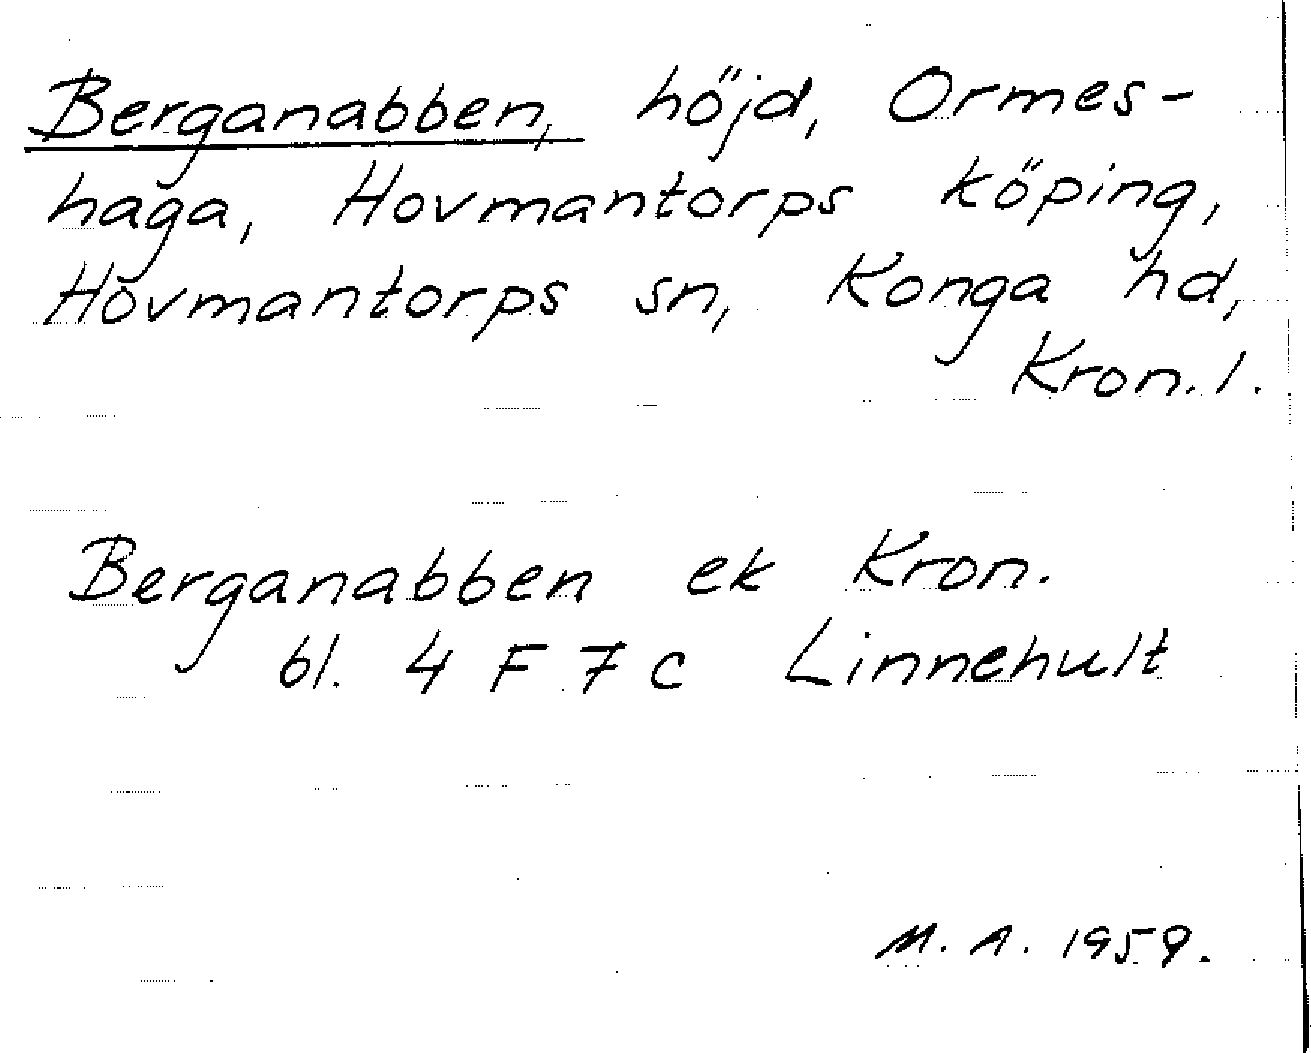 Berganabben, höjd, Ormes-
haga, Hovmantorps köping,
Hovmantorps sn, Konga hd,
Kron. l.
Berganabben ek Kron.
bl. 4 F 7 c Linnehult
M. A. 1959.